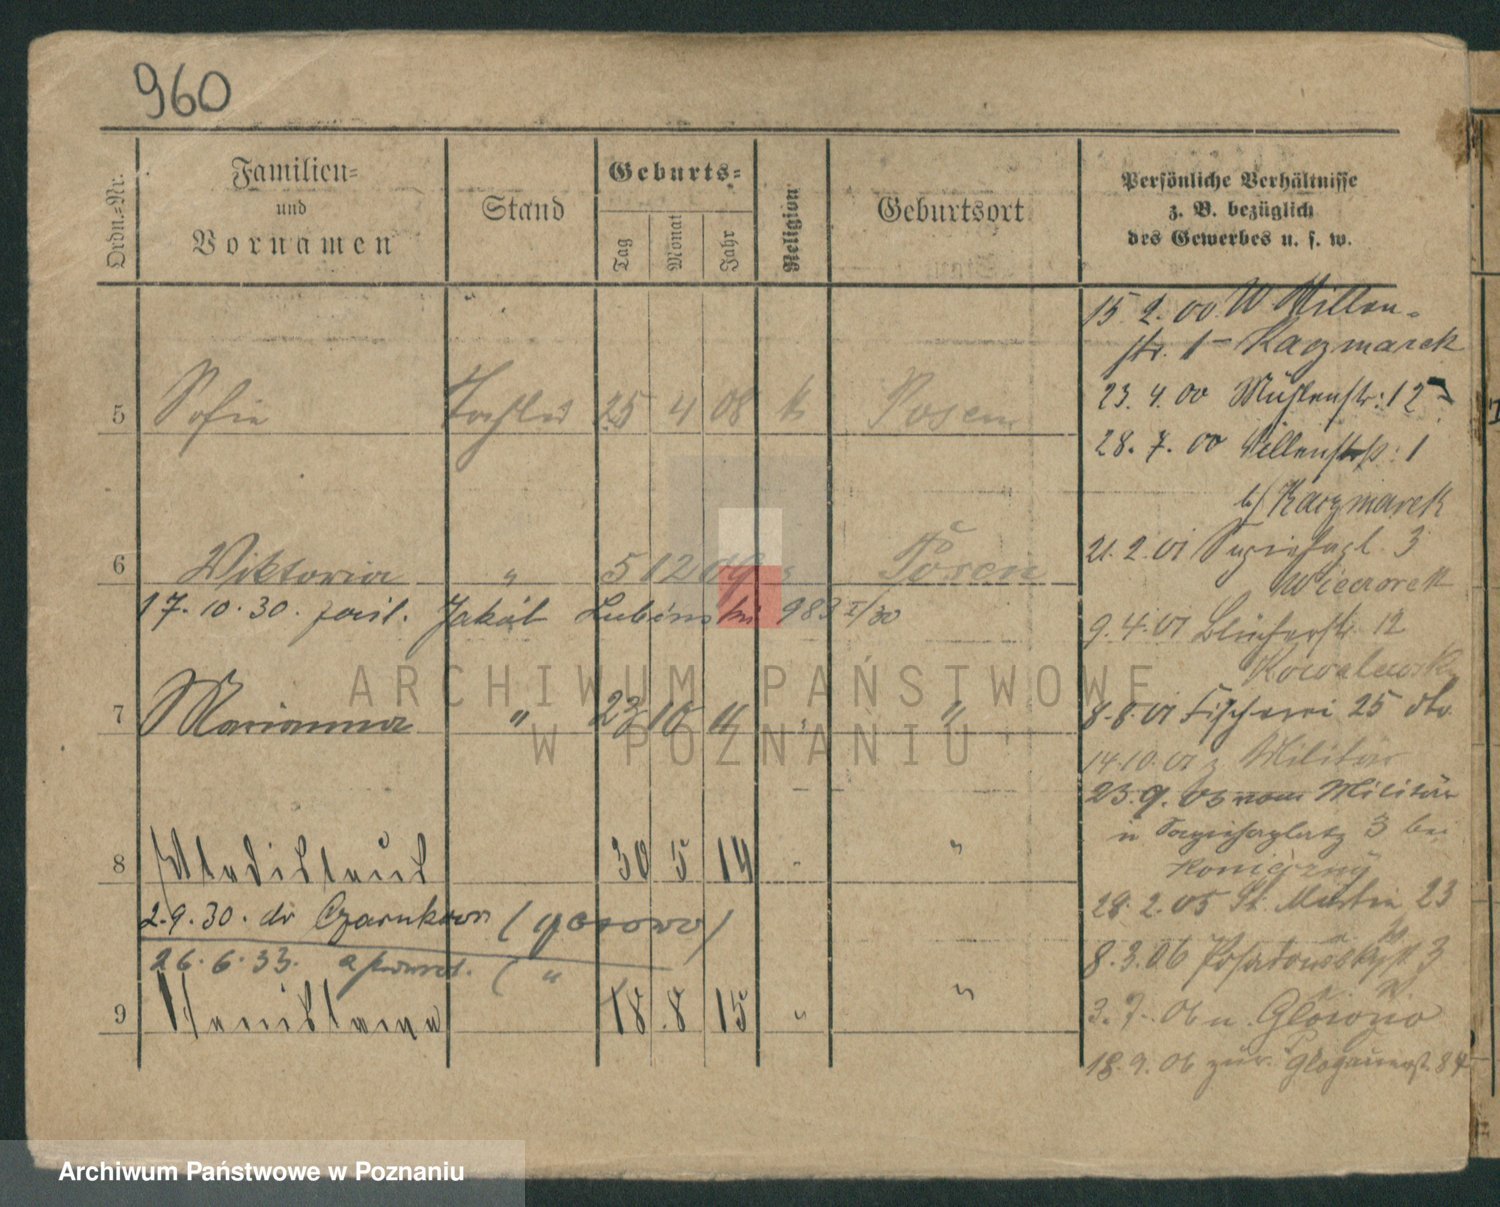 960
Ordn.-Nr.
Familien-
und
Vornamen
Stand
Geburts-
Tag
Monat
Jahr
Religion
Geburtsort
Persönliche Verhältnisse
z. B. bezüglich
des Gewerbes u. s. w.
5 Sofie Tochter 25 4 08 k Posen
6 Wiktoria " 5 12 09 " Posen
17. 10. 30. Jakób Lubiński 983 I/30
7 Marianna " 22 10 11 " "
8 Wladislaus 30 5 14 " "
2.9.30. do Czarnków (Gorowo)
26.6.33. a powrot. ( "
9 Stanislawa 18 8 15 " "
15. 2. 00 W Willen-
str. 1 - Kaczmarek
23. 4. 00 Mühlenstr: 12
28. 7. 00 Willenstr: 1
b/ Kaczmarek
21. 2. 01 Sapiehapl. 3
Wieczorek
9. 4. 01 Blücherstr 12
Kowalewski
8. 8. 01 Fischerei 25
14.10.01 z Militär
23. 9. 03 vom Militär
n Sapiehaplatz 3 bei
Konieczny
28. 2. 05 St. Martin 23
8. 3. 06 Posadowskystr 3
3. 7. 06 n. Glowno
18. 9. 06 zur. Glogauerst. 84
ARCHIWUM PAŃSTWOWE
W POZNANIU
Archiwum Państwowe w Poznaniu